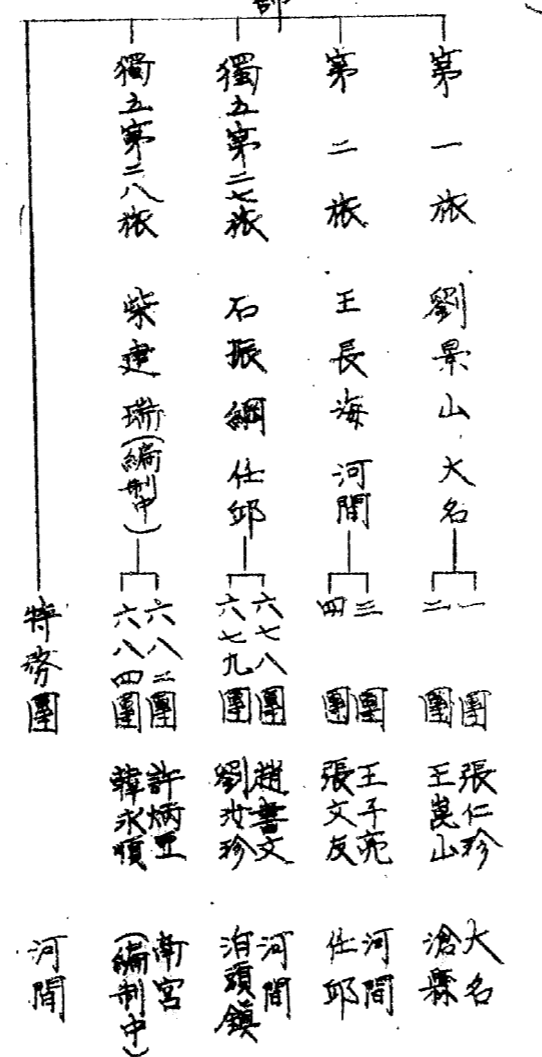 師
第一旅 劉景山 大名
一團 張仁珍 大名
二團 王崑山 滄縣
第二旅 王長海 河間
三團 王子亮 河間
四團 張文友 任邱
獨立第二七旅 石振綱 任邱
六七八團 趙書文 河間
六七九團 劉汝珍 泊頭鎮
獨立第二八旅 柴建瑞(編制中)
六八二團 許炳亞 南宮
六八四團 韓永順 (編制中)
特務團 河間